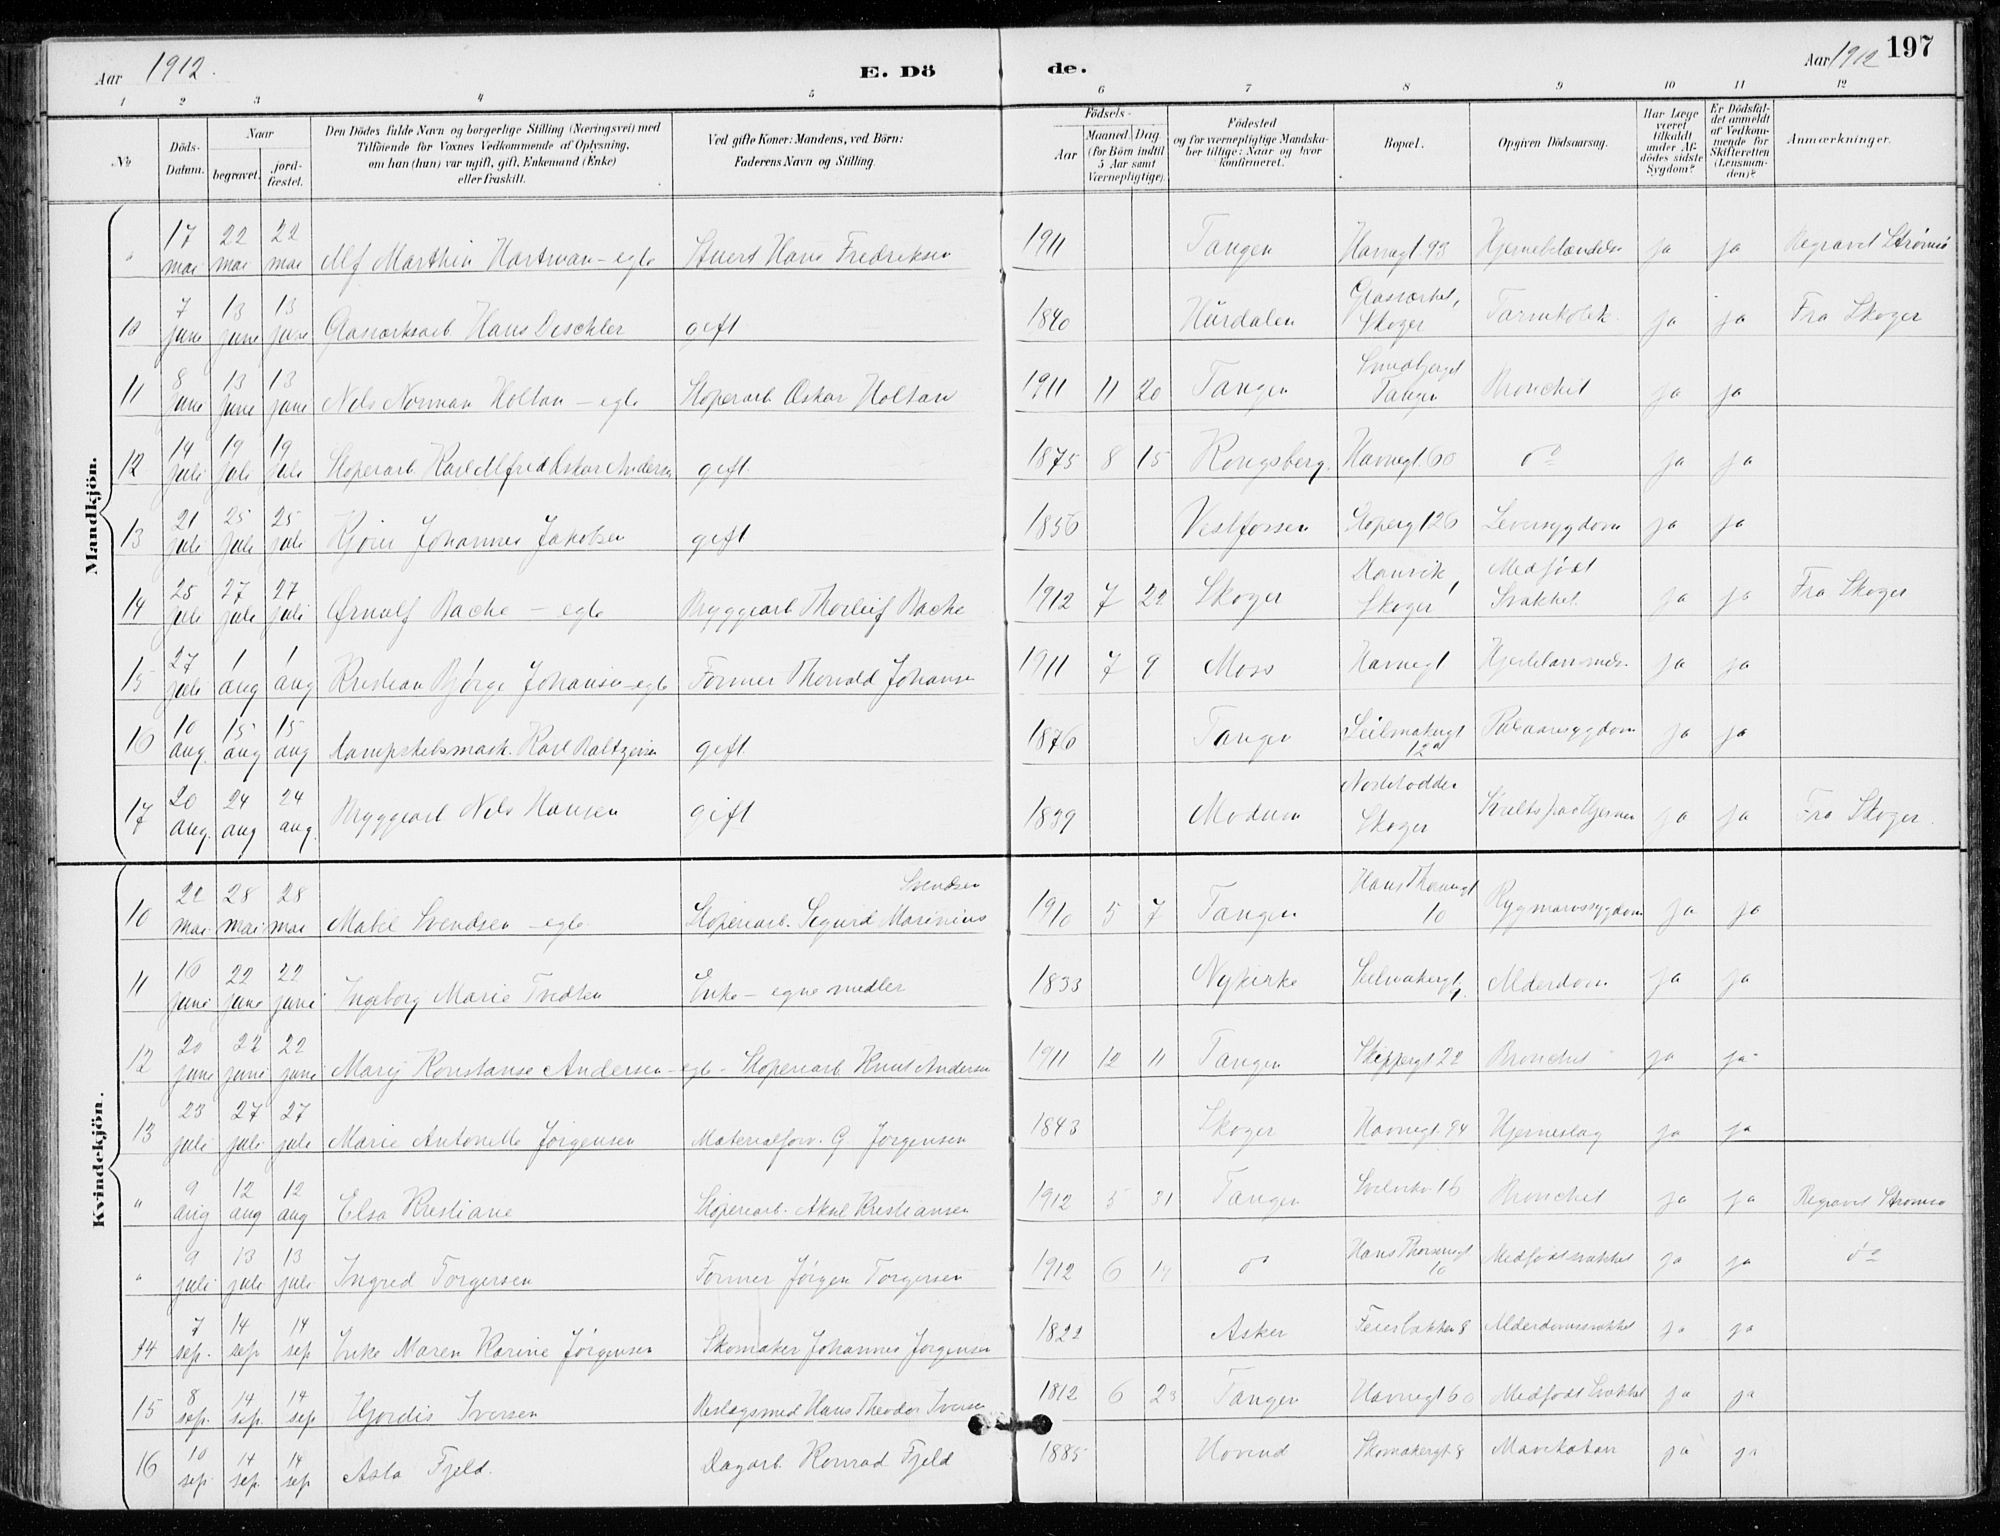 Aar 1912.
E. Dö
de.
Aar 1912
197
1 2 3 4 5 6 7 8 9 10 11 12
№
Döds-Datum.
Naar
begravet.
jord-fæstet.
Den Dödes fulde Navn og borgerlige Stilling (Næringsvei) med
Tilföiende for Voxnes Vedkommende af Oplysning,
om han (hun) var ugift, gift, Enkemand (Enke)
eller fraskilt.
Ved gifte Koner: Mandens, ved Börn:
Faderens Navn og Stilling.
Födsels-
Aar
Maaned Dag
(for Börn indtil
5 Aar samt
Værnepligtige)
Födested
og for værnepligtige Mandska-
ber tillige: Naar og hvor
konfirmeret.
Bopæl.
Opgiven Dödsaarsag.
Har Læge
været
tilkaldt
under Af-
dödes sidste
Sygdom?
Er Dödsfal-
det anmeldt
af Vedkom-
mende for
Skifteretten
(Lensman-
den)?
Anmærkninger.
Mandkjön.
" 17 mai 22 mai 22 mai Alf Marthin Hartman - egte Stuert Hans Fredriksen 1911 Tangen Havnegt. 93 Hjernebetændelse ja ja Begravet Strømsø
10 7 june 13 june 13 june Glasværksarb Hans Dischler gift 1840 Hurdalen Glasværket, Skoger Tarmkolik ja ja Fra Skoger
11 8 june 13 june 13 june Nils Norman Holtan - egte Stoperiarb Oskar Holtan 1911 11 20 Tangen Smedbjerget Tangen Bronchit ja ja
12 14 juli 19 juli 19 juli Stoperiarb Karl Alfred Oskar Andersen gift 1875 8 15 Kongsberg. Havnegt. 60 do ja ja
13 21 juli 25 juli 25 juli Kjører Johannes Jakobsen gift 1856 Vestfossen Stoperigt 26 Leversygdom ja ja
14 25 juli 27 juli 27 juli Ørnulf Bache - egte Bryggearb Thorleif Bache 1912 7 22 Skoger Skoger Medfødt Svakhet. ja ja Fra Skoger
15 27 juli 1 aug 1 aug Kristian Bjørge Johansen - egte Former Thorvald Johansen 1911 7 9 Moss Havnegt ja ja
16 10 aug. 15 aug 15 aug Dampskibsmask. Karl Baltzersen gift 1876 Tangen Seilmakergt 12a ja ja
17 20 aug. 24 aug 24 aug. Bryggearb Nils Hansen gift 1839 Modum Skoger Kræft paa Hjernen ja ja Fra Skoger.
Kvindekjön.
10 22 mai 28 mai 28 mai Mabel Svendsen - egte Stoperiarb. Sigurd Marinius Svendsen 1910 5 7 Tangen Hans Thornesgt 10 Rygmarvssygdom ja ja
11 16 juni 22 june 22 juni Ingeborg Marie Tvedten Enke - egne midler 1833 Nykirke Seilmakergt Alderdom ja ja
12 20 june 22 juni 22 june Mary Konstanse Andersen - egte - Stoperiarb Knut Andersen 1911 12 11 Tangen Skippergt 22 Bronchit ja ja
13 23 juli 27 juli 27 juli Marie Antonette Jørgensen Materialforv. G Jørgensen 1843 Skoger Havnegt 94 Hjerneslag ja ja
" 9 aug 12 aug 12 aug Elsa Kristiane Stoperiarb. Aksel Kristiansen 1912 5 31 Tangen Bronchit ja ja Begravet Strømsø
" 9 juli 13 juli 13 juli Ingrid Torgersen Former Jørgen Torgersen 1912 6 14 do Hans Thornesgt 10 Medfødt svakhet ja ja do
14 7 sep. 14 sep 14 sep Enke Maren Karine Jørgensen Skomaker Johannes Jørgensen 1822 Asker Feierbakken 8 Alderdomssvakhet ja ja
15 8 sep. 14 sep. 14 sep Hjordis Iversen Beslagsmed Hans Theodor Iversen 1812 6 23 Tangen Havnegt 60 Medfødt Svakhet ja ja
16 10 sep 14 sep. 14 sep. Asta Fjeld. Dagarb. Konrad Fjeld 1885 Hovind Skomakergt 8 Mavekatar ja ja